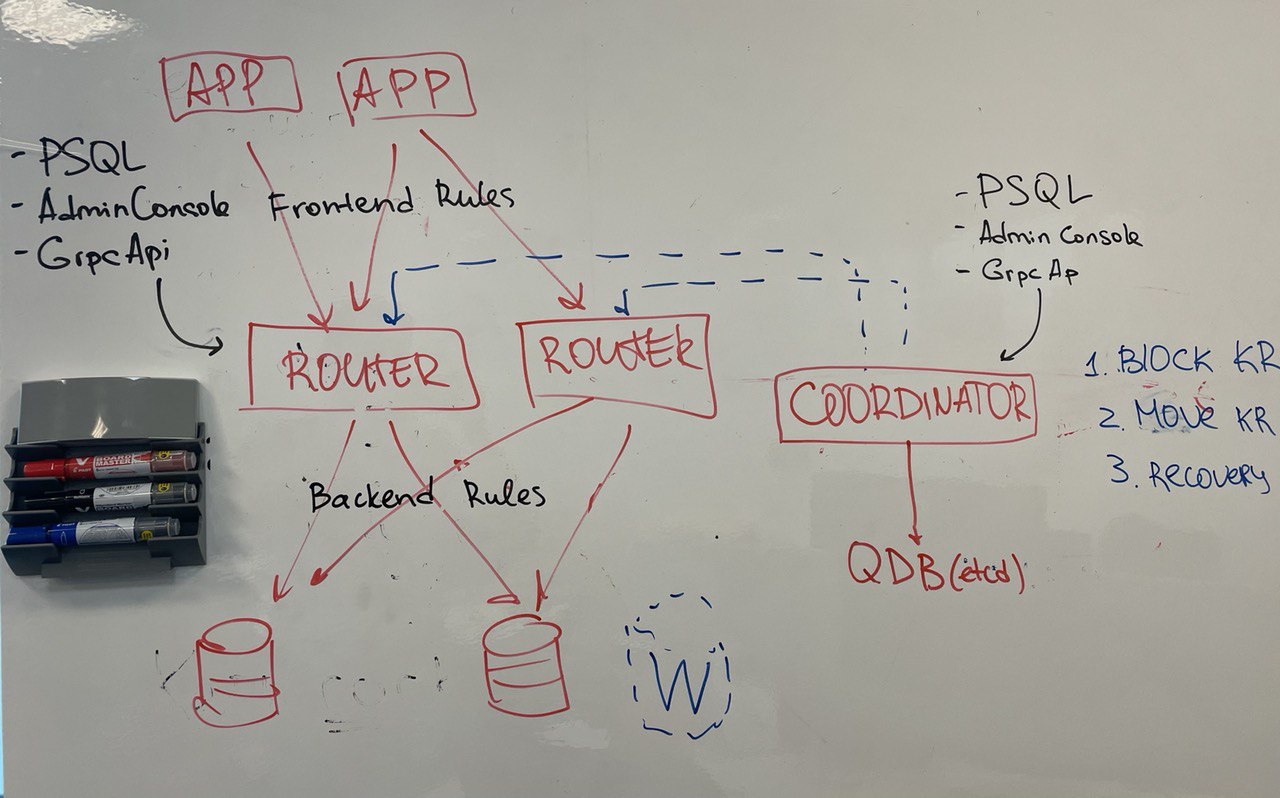 APP
APP
- PSQL
- AdminConsole
- GrpcApi
Frontend Rules
- PSQL
- Admin Console
- Grpc Ap
ROUTER
ROUTER
COORDINATOR
1. BLOCK KR
2. MOVE KR
3. RECOVERY
BOARD MASTER
Backend Rules
QDB (etcd)
W